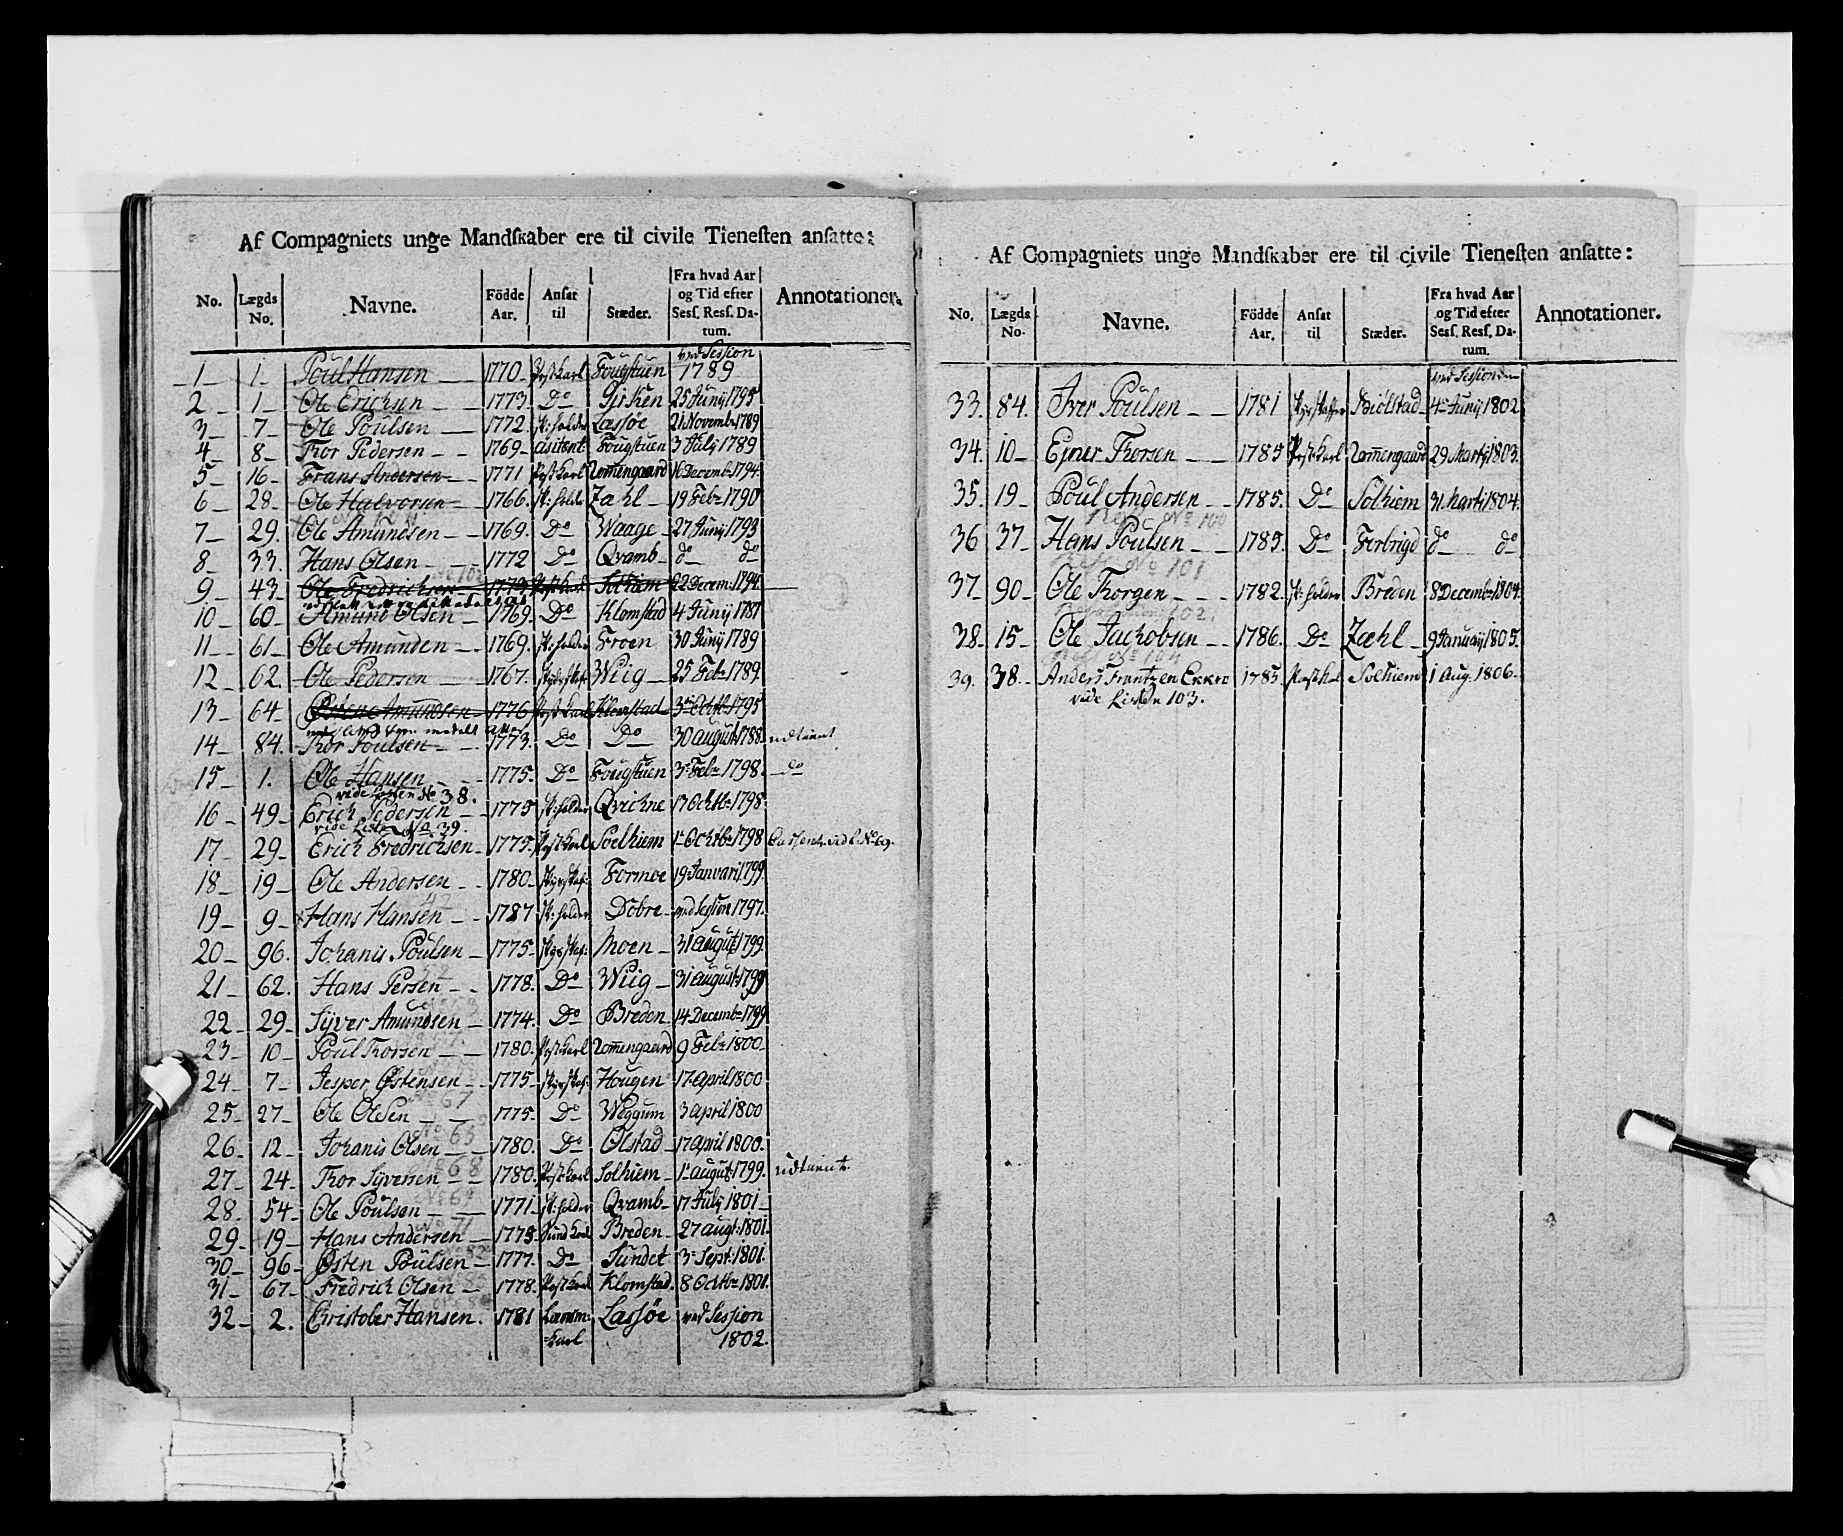 Af Compagniets unge Mandskaber ere til civile Tienesten ansatte:
No. Lægds No. Navne. Födde Aar. Ansat til Stæder. Fra hvad Aar og Tid efter Sess. Ress. Datum. Annotationer.
1 1 Poul Hansen 1770 Postkarl Fougstuen ved Session 1789
2 1 Ole Erichsen 1773 Do Girken 25 Junij 1795
3 7 Ole Poulsen 1772 Sk: holder Lassöe 21 Novembr 1789
4 8 Thor Pedersen 1769 Fougstuen 3 July 1789
5 16 Frans Andersen 1771 Postkarl Tommengaard 16 Decembr 1794
6 28 Ole Halvorsen 1766 Sk: holder Zahl 19 Febr 1790
7 29 Ole Amundsen 1769 Do Waage 27 Junij 1793
8 33 Hans Olsen 1772 Do Qvamb do do
9 43 Ole Fredrichsen 1773 Postkarl Solhiem 22 Decem: 1794
10 60 Amund Olsen 1769 Do Klomstad 4 Junij 1787
11 61 Ole Amunden 1769 Sk: holder Froen 30 Junij 1789
12 62 Ole Pedersen 1767 Wiig 25 Febr 1789
13 64 Amundsen 1776 Postkarl Klomstad 3 Octbr 1795
14 84 Thor Poulsen 1773 Do Do 30 august 1788 udtient
15 1 Ole Hansen 1775 Do Fougstuen 3 Febr 1798 do
vide Listen No 38.
16 49 Erich Pedersen 1775 Sk: holder Qvichne 17 Octbr 1798
vide Listen No 39.
17 29 Erich Fredrichsen 1775 Postkarl Soelhiem 1 Octbr 1798
18 19 Ole Andersen 1780 Formoe 19 Januari 1799
19 9 Hans Hansen 1787 Sk: holder Dobre ved Session 1797
20 96 Johanis Poulsen 1775 Moen 31 august 1799
21 62 Hans Persen 1778 Do Wiig 31 august 1799
22 29 Syver Amundsen 1774 Do Breden 14 Decembr 1799
23 10 Poul Thorsen 1780 Postkarl Tommengaard 9 Febr 1800
24 7 Jesper Östensen 1775 Hougen 17 april 1800
25 27 Ole Olsen 1775 Do Weggum 3 april 1800
26 12 Johanis Olsen 1780 Do Olstad 17 april 1800
27 24 Thor Syversen 1780 Postkarl Solhiem 1 august 1799 udtient
28 54 Ole Poulsen 1771 Sk: holder Qvamb 17 July 1801
29 19 Hans Andersen 1775 Sundkarl Breden 27 augt: 1801
30 96 Østen Poulsen 1777 Do Sundet 3 Sept: 1801
31 67 Fredrich Olsen 1778 Postkarl Klomstad 8 Octbr 1801
32 2 Christofer Hansen 1781 Lassöe ved Session 1802
Af Compagniets unge Mandskaber ere til civile Tienesten ansatte:
No. Lægds No. Navne. Födde Aar. Ansat til Stæder. Fra hvad Aar og Tid efter Sess. Ress. Datum. Annotationer.
33 84 Iver Poulsen 1781 Biölstad ved Sessionen 4 Junij 1802
34 10 Ejner Thorsen 1785 Postkarl Tommengaard 29 Marty 1803
35 19 Poul Andersen 1785 Do Solhiem 31 Marti 1804
No 100
36 37 Hans Poulsen 1785 Do Forbrigd do do
No 101
37 90 Ole Thorgen 1782 Sk: holder Breden 8 Decembr 1804
102.
38 15 Ole Jachobsen 1786 Do Zæhl 9 Januarij 1805
No 104
39 38 Anders Frantzen Ekkre 1785 Postkal Solhiem 1 Aug. 1806
vide Listen 103.